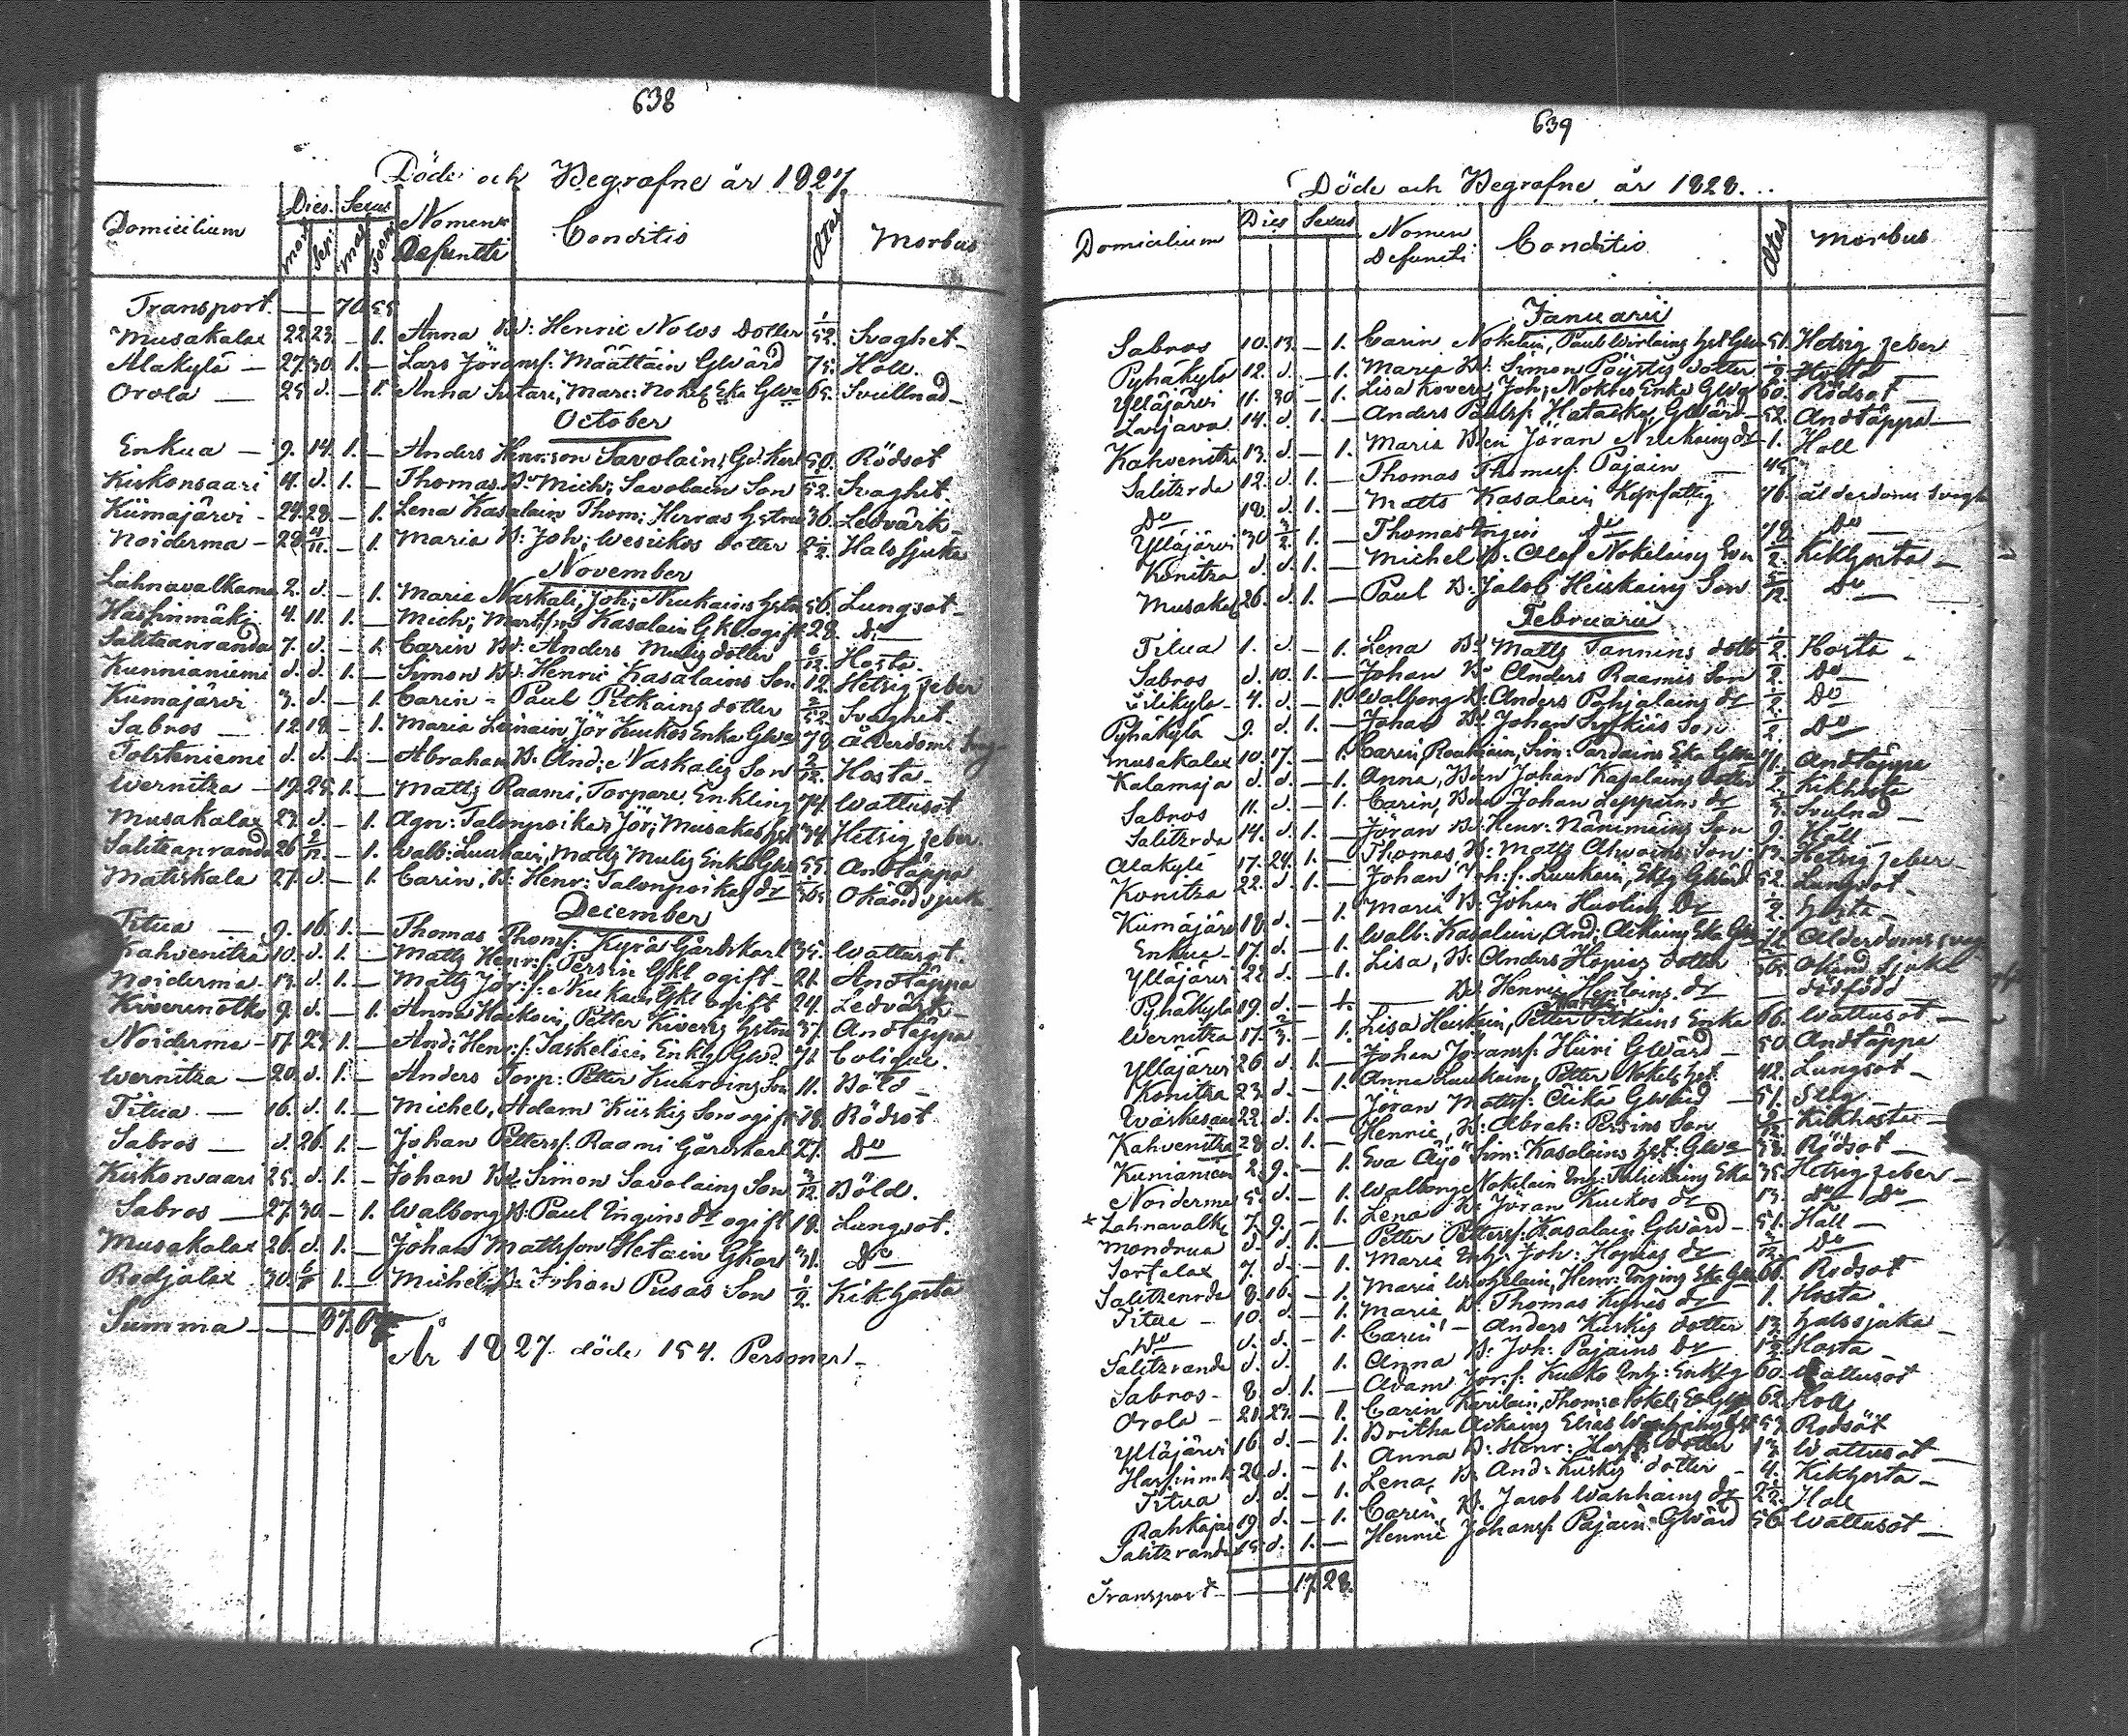 638
Döde och Begrafne år 1827.
Domicilium Dies. Sexus Nomen Defuncti Conditio Ætas Morbus
mor: sep: mas foem
Transport. — 70. 55
Musakalax 22. 23. — 1. Anna B: Henric Nolvs Dotter 1/52. Svaghet
Alakylä — 27. 30. 1. — Lars Jöransf: Määttäin GWärd 75. Håll.
Orola — 25. d. — 1. Anna Sutari, Marc: Nokel Eka GWa 65. Svullnad
October
Enkua — 9. 14. 1. — Anders Henricson Savolain, Gd. Karl 50. Rödsot
Kiskonsaari 11. d. 1. — Thomas B: Mich: Savolain Son 52. Svaghet.
Kiimajärvi - 24. 28. — 1. Lena Kasalain Thom: Hervas hstru 36. Ledvärk
Noiderma — 28. 4/11. — 1. Maria B: Joh: Wesikos dotter 2 1/2. Halssjuka
November
Lahnavalkama 2. d. — 1. Maria Naskali, Joh: Niukains hstr 56. Lungsot
Hasfinmäki 4. 11. 1. — Mich: Kasalain GKl ogift 28. Do
Salitzanranda 7. d. — 1. Carin B: Anders Mulis dotter 6/12. Hosta.
Kunnianiemi d. d. 1. — Simon B: Henric Kasalains Son 12. Hetsig feber
Kiimajärvi 3. d. — 1. Carin - Paul Pitkains dotter 2/52. Svaghet
Sabros — 12. 18. — 1. Maria Leinain Jör Kuckos Enka GWa 78. Ålderdoms Svag-
Toliteniemi d. d. 1. — Abraham B: And: Naskalis Son 2/12. Hosta
Wernitza — 19. 25. 1. — Matts Raami, Torpare Enkling 74. Wattusot
Musakalax 23. d. — 1. Agn: Talonpoika, Jör: Musakas hst 34. Hetsig feber.
Salitzanranda 26 2/12. — 1. Walb: Luukain, Matts Mulis Enka GWa 55. Andtäppa
Matiskala 27. d. — 1. Carin, B: Henr: Talonpoikas dr Okänd sjuk
December
Titua — 9. 16. 1. — Thomas Thomf: Kyrä Gårdskarl 35. Wattusot.
Kahvenitza 10. d. 1. — Matts Henr:f: Persin GKl ogift 21. Andtäppa
Noiderma — 13. d. 1. — Matts Jör:f: Niukain GKl ogift 24. Ledvärk
Kiverinotko 9. d. — 1. Anna Haikoin, Petter Kiveris hstru 37. Andtäppa
Noiderma — 17. 23. 1. — And: Henr:f: Jaskeläin Enkls GWd 71 Colique.
Wernitza — 20. d. 1. — Anders Torp: Petter Kukroins Son 11. Böld
Titua — 16. d. 1. — Michel, Adam Kiiskis Son ogift 18. Rödsot
Sabros — d. 26. 1. — Johan Pettersf: Raami Gårdskarl 27. Do
Kiskonsaari 25. d. 1. — Johan B: Simon Savolains Son 3/12. Böld.
Sabros — 27. 30 — 1. Walborg B: Paul Ingins dr ogift 18. Lungsot.
Musakalax 26. d. 1. — Johan Mattsson Hetain GKarl 31. Do
Rodjalax 30. 1. — Michel, B: Johan Pusas Son 1/2. Kikhosta
Summa — 87.
År 1827. döde 154. Personer.
639
Döde och Begrafne år 1828.
Domicilium Dies Sexus Nomen Defuncti Conditio Ætas Morbus
Januarii
Sabros 10. 13. — 1. Carin Nokelain, Paul 51. Hetsig feber
Pyhäkylä 12. d. — 1. Maria B: Simon Pöystis dotter 1/2 Hosta
Ylläjärvi 11. 30. — 1. Lisa Koveri, Joh: Nokes Enka GWa 60. Rödsot
Larjava 14. d. 1. — Anders Paulsf: Hatacka, GWärd 52. Andtäppa
Kahvenitza 13. d. — 1. Maria B: Jöran Niukains dr 1. Håll
Salitzrda 12. d. 1. — Thomas Thomasf: Pajain — 45.
Do 18. d. 1. — Matts Kasalain Kyrkfattig 76. ålderdoms svaghet
Ylläjärvi 30 3/2. 1. — Thomas Ingin Do 78. Do
Konitza d. d. 1. — Michel B: Olof Nokelains Son 1/2. Kikhosta
Musakal 26. d. 1. — Paul B: Jacob Heiskains Son 5/12. Do
Februarii
Titua 1. d. — 1. Lena B: Matts Tannins dott 1/2. Hosta
Sabros d. 10. 1. — Johan B: Anders Raamis Son 1/2. Do
Silikylä 4. d. — 1. Walborg B: Anders Pohjalains dr 1/2. Do
Pyhäkylä 9. d. 1. — Johan B: Johan Son 1/2. Do
Musakalax 10. 17. — 1. Carin Sim: Pärdains Eka GWa 71. Andtäppa
Kalamaja d. d. — 1. Anna, B: Johan Kasalains dotter 1/2. Kikhosta
Sabros 11. d. — 1. Carin, B: Johan Leppäins dr Svulnad
Salitzrda 14. d. 1. — Jöran B: Henr: Näriemains Son 9. Håll
Alakylä 17. 24. 1. — Thomas B: Matts Ahvains Son 13. Hetsig feber
Konitza 22. d. 1. — Johan Joh:f: Luukain, Ekls GWärd 52. Lungsot
Kiimäjärvi 18. d. — 1. Maria B: Johan Huolis Dr 1/2. Hosta
Enkua 17. d. — 1. Walb: Kasalain, And: Aikains Eka GWa 72. Ålderdoms svag
Ylläjärvi 22. d. — 1. Lisa, B: Anders Hopias dotter Okänd sjukd
Pyhäkylä 19. d. — 1. — B: Henric dr — dödfödd
Martii
Wernitza 17. 2/3. — 1. Lisa Heiskain, Petter Pitkains Enka 66. Wattusot
Ylläjärvi 26. d. 1. — Johan Jöransf: Hiiri GWärd 50. Andtäppa
Konitza 23. d. — 1. Anna Luukain, Petter Nokels hst 42. Lungsot
Wärkesaari 22. d. 1. — Jöran Mattsf: Äikä GWärd 51. Slag
Kahvenitza 28. d. 1. — Henric, B: Abrah: Persins Son Kikhosta
Kunianiem 2. 9. — 1. Eva Äijö Sim: Kasalains hst: GWa 38. Rödsot
Noiderma 5. d. — 1. Walborg Nokelain Eka 35. Hetsig feber
Lahnavalk 7. 9. — 1. Lena B: Jöran Kuckos dr 13. Do Do
Mondrua d. d. 1. — Petter Pettersf: Kasalain GWärd 51. Håll
Sortalax 7. d. — 1. Maria Joh: Hopias dr 3/12. Do
Salitzenrda 8. 16. — 1. Maria Henr: Ingins Eka GWa 66. Rödsot
Titua 10. d. — 1. Maria B: Thomas Kyrös dr 1. Hosta
Do d. d. — 1. Carin — Anders Kiiskis dotter 13. halssjuka
Salitzranda d. d. 1. Anna B: Joh: Pajains dr 1 1/2. Hosta
Sabros — 8. d. 1. — Adam Jör:f: Kucko Enklg 60. Wattusot
Orola — 21. 23. — 1. Carin Karilain, Thom: Nokels Ea GWa 62. Håll
Ylläjärvi 16. d. — 1. Britha Aikains Elias 53. Rödsot
Hasfinmk 20. d. — 1. Anna B: Henr: dotter 13. Wattusot
Titua d. d. — 1. Lena, B: And: Kiiskis dotter 4. Kikhosta
Rahkajär 19. d. — 1. Carin, B: Jacob Wanhains dr 2 1/2. Håll
Salitzranda 15. d. 1. — Henric Johansf: Pajain GWärd 56. Wattusot
Transport — 17. 28.